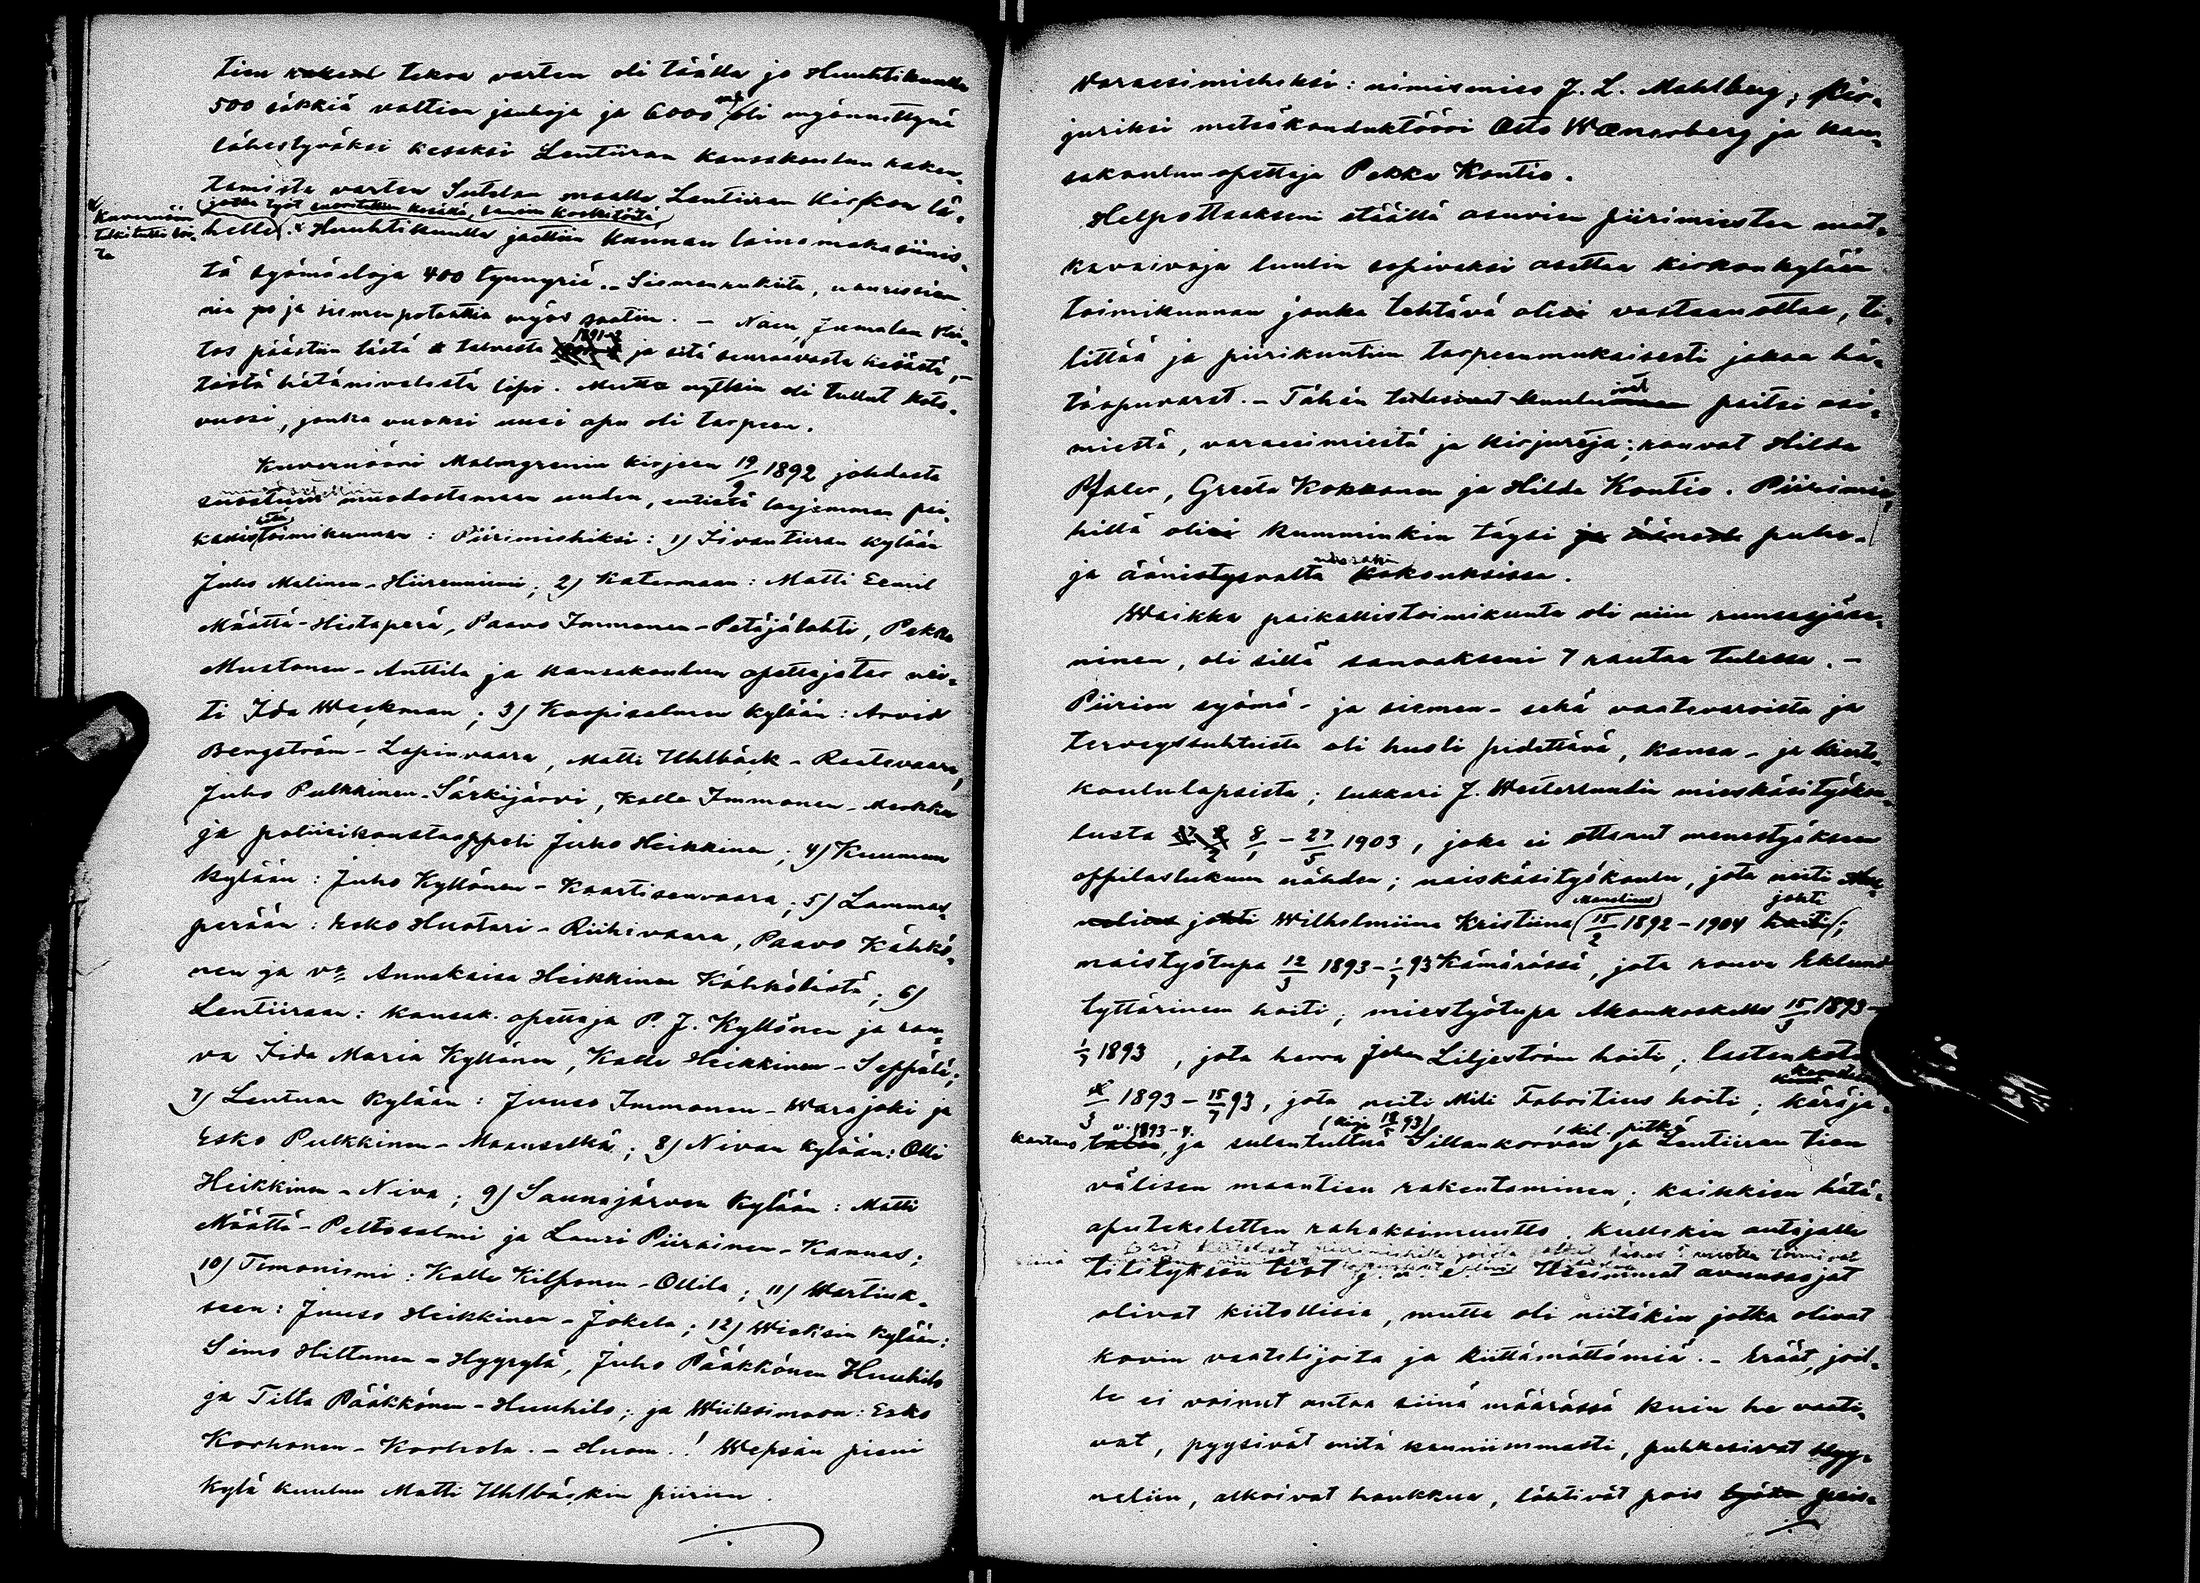 tien tekoa varten oli täällä jo Huuhtikuulla
500 säkkiä valtion jauhoja ja 6000 mk oli myönnettynä
lähestyväksi kesäksi Lentiiran kansakoulun raken-
tamista varten Sutelan maalle, Lentiiran kirkon lä-
(jotka työt suoritettiin kesällä, samoin koskitöitä)
helle. x Huuhtikuulla jaettiin kunnan lainamakasiinis-
x Kuvernööri
tutki
ta
tä syömäeloja 400 tynnyriä. - Siemenrukiita, naurissieme-
niä ja siemenpotaattia myös saatiin. - Näin, Jumalan kii-
tos päästiin tästä talvesta 1891-2 ja sitä seuraavasta kesästä, -
tästä hätänivelestä läpi. Mutta nytkin oli tullut kato-
vuosi, jonka vuoksi uusi apu oli tarpeen.
Kuvernööri Malmgrenin kirjeen 19/9 1892 johdosta
suostuin muodostamaan uuden, entistä laajemman pai-
kallistoimikunnan: Piirimiehiksi: 1) Iivantiiran kylään
Juho Malinen - Hiirenniemi; 2) Katermaan: Matti Eemil
Määttä - Hietaperä, Paavo Immonen - Petäjälahti, Pekka
Mustonen - Anttila ja kansakoulun opettajatar nei-
ti Ida Weckman; 3) Korpisalmen kylään: Arvid
Bengström - Lapinvaara, Matti Uhlbäck - Raatevaara,
Juho Pulkkinen - Särkijärvi, Kalle Immonen - Markka
ja poliisikonstaappeli Juho Heikkinen; 4) Kuuman
kylään: Juho Kyllönen - Kaartisenvaara; 5) Lammas-
perään: Esko Huotari - Riihivaara, Paavo Kähkö-
nen ja v:o Annakaisa Heikkinen Kähkölästä; 6)
Lentiiraan: kansak. opettaja P. J. Kyllönen ja rou-
va Iida Maria Kyllönen, Kalle Heikkinen - Seppälä;
7) Lentuan kylään: Juuso Immonen - Warajoki ja
Esko Pulkkinen - Maanselkä; 8) Nivan kylään: Olli
Heikkinen - Niva; 9) Saunajärven kylään: Matti
Määttä - Peltosalmi ja Lauri Piirainen - Kannas;
10) Timoniemi: Kalle Kilponen - Ollila; 11) Wartiuk-
seen: Juuso Heikkinen - Jokela; 12) Wieksin kylään:
Simo Hiltunen - Hyyrylä, Juho Pääkkönen Huuhilo
ja Tilta Pääkkönen - Huuhilo; ja Wiiksimoon: Esko
Korhonen - Korhola. - Huom.! Wepsän pieni
kylä kuuluu Matti Uhlbäckin piiriin.
Varaesimieheksi: nimismies J. L. Mahlberg; kir-
juriksi metsäkonduktööri Otto Wænerberg ja kan-
sakoulun opettaja Pekka Kontio.
Helpottaakseni etäällä asuvien piirimiesten mat-
kavaivoja luulin sopivaksi asettaa kirkonkylään
toimikunnan jonka tehtävä olisi vastaanottaa, ti-
littää ja piirikuntiin tarpeenmukaisesti jakaa hä-
täapuvarat. - Tähän kuuluivat paitsi esi-
miestä, varaesimiestä ja kirjureja; rouvat Hilda
Pfaler, Greeta Kokkonen ja Hilda Kontio. Piirimie-
hillä olisi kumminkin täysi ja puhe-
ja äänistysvalta kokouksissa.
Waikka paikallistoimikunta oli niin runsasjäse-
ninen, oli sillä sanoakseni 7 rautaa tulessa. -
Piirien syömä- ja siemen- sekä vaatevaroista ja
terveyssuhteista oli huoli pidettävä, kansa- ja kierto-
koululapsista; lukkari J. Westerlundin mieskäsityökou-
lusta 8/1 - 27/5 1903, joka ei ottanut menestyäkseen
oppilaslukuun nähden; naiskäsityökoulu, jota neiti
Wilhelmiina Kristiina 15/2 1892 - 1904 johti;
naistyötupa 12/3 1893 - 1/7 93 Kämärässä, jota rouva Eklund
tyttärineen hoiti; miestyötupa Akonkoskella 15/3 1893 -
1/7 1893, jota herra Johan Liljeström hoiti; lastenkoti
1893 - 15/7 93, jota neiti Mili Fabritius hoiti; käräjä-
kartano v. 1893-4. ja sulantultua (kirje 18/5 93) Sillankorvan ja Lentiiran tien (kil. pitkä)
välisen maantien rakentaminen; kaikkien hätä-
aputekeletten rahaksimuutto, kullekin antajalle
tilityksen teot j. n. e. Useimmat avunsaajat
olivat kiitollisia, mutta oli niitäkin jotka olivat
kovin vaatelijoita ja kiittämättömiä. - Eräät, joil-
le ei voinut antaa siinä määrässä kuin he vaati-
vat, pyysivät mitä kauniimmasti, puhkesivat kyy-
neliin, alkoivat haukkua, lähtivät pois